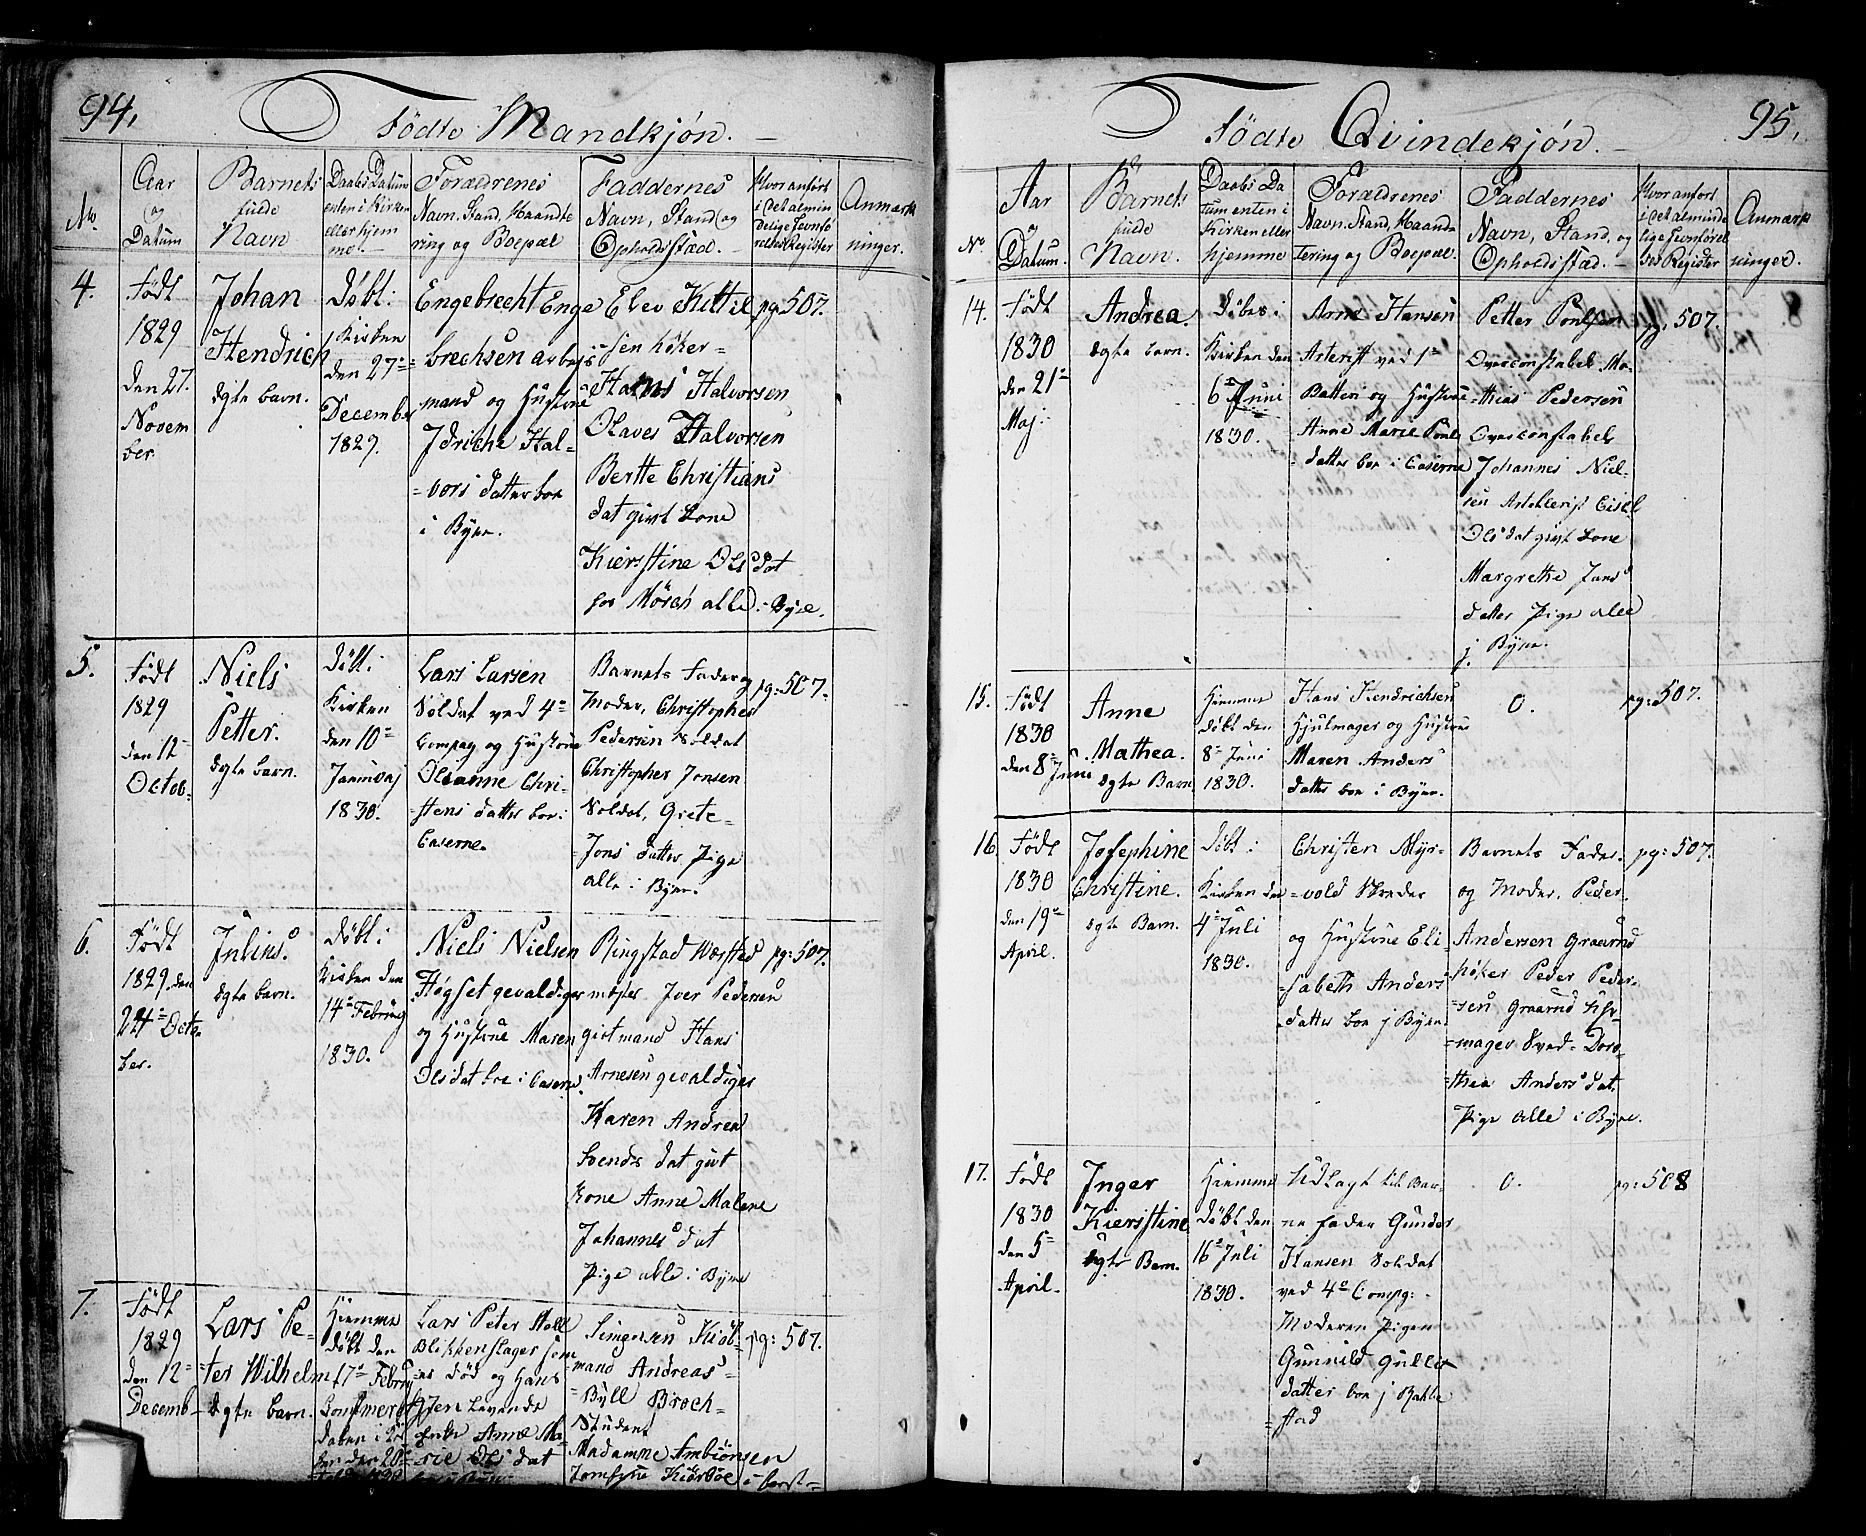 94.
Födte Mandkjön.
No.
Aar og Datum
Barnets fulde Navn
Daabs Datum enten i Kirken eller hjemme.
Forældrenes Navn, Stand, Haandtering og Boepæl
Faddernes Navn, Stand og Opholdsstæd.
Hvor anfört i det almindelige Jevnförelses Register
Anmærkninger.
4.
Födt
1829
den 27.
Novem
ber.
Johan
Hendrich
ægte barn.
Döbt i
Kirken
den 27de
December
1829.
Engebrecht Enge
brechsen arbeis
mand og Hustrue
Idriche Hal=
=vors datter boe
i Byen.
Elev Kittil
sen höker=
Hans Halvorsen
Olaves Halvorsen
Berthe Christians
dat givt Kone
Kierstine Ols dat
hos Mörch alle i Byen.
pg: 507.
5.
Födt
1829
den 12
Octob=
Niels
Petter.
ægte barn.
Döbt i
Kirken
den 10de
Januarj
1830.
Lars Larsen
Soldat ved 4de
Compag og Hustrue
Oleanne Chri=
stens datter boe i
Caserne.
Barnets Fader og
Moder, Christopher
Pedersen Soldat
Christopher Jonsen
Soldat, Grete=
=Jons datter Pige
alle i Byen.
pg: 507.
6.
Födt
1829. den
24de Octo
ber.
Julius.
ægte barn.
Döbt i
Kirken den
14de Februarj
1830.
Niels Nielsen
Högset gevaldiger
og Hustrue Maren
Olsdat boe i Caserne.
Ringstad Værsted
mester Iver Pedersen
givtmand Hans
Arnesen gevaldiger
Karen Andrea
Svends dat givt
Kone Anne Malene
Johannes dat
Pige alle i Byen
pg: 507.
7.
Födt
1829
den 12te
Decemb=
Lars Pe=
=ter Wilhelm
ægte barn.
Hiemme
döbt den
17de Februarj
Lars Peter Moll
Blikkenslager som
er död og Hans
Igjen Levende
Enke Anne Ma=
rie Ols dat
Simonsen Kiöb=
mand Andreas
Büll Broch=
Student
Madamme Ambiörnsen
Jomfrue Kiörboe
pg: 507.
95.
Födte Qvindekjön.
No
Aar og Datum.
Barnets fulde Navn.
Daabs Datum enten i Kirken eller hjemme
Forældrenes Navn, Stand, Haandtering og Boepæl.
Faddernes Navn, Stand, og Opholdsstæd.
Hvor anfört i det almindelige Jevnförelses Register
Anmærkninger.
14.
Födt
1830
den 21de
Maj.
Andrea.
ægte barn.
Döbes i
Kirken den
6te Juni
1830.
Arne Hansen
Arterist ved 1ste
Batteri og Hustrue
Anne Marie Pouls
=datter boe i Caserne
Petter Poulsen
Overconstabel Ma=
=thias Pedersen
Overconstabel
Johannes Niel=
sen Artellerist Eisil
Olsdat givt Kone
Margrethe Jans
datter Pige alle
j Byen.
pg: 507.
15.
Födt
1830
den 8de Juni
Anne
Mathea.
ægte Barn
Hiemme
döbt den
8de Juni
1830.
Hans Hendrichsen
Hjulmager og Hustrue
Maren Anders
datter boe i Byen.
0.
pg: 507.
16.
Födt
1830
den 19de
April.
Josephine
Christine.
ægte Barn.
Döbt i
Kirken den
4de Juli
1830.
Christen Myr=
=vold Skreder
og Hustrue Eli
=sabeth Anders
=datter boe j Byen.
Barnets Fader.
og Moder. Peder
Andersen Graarud
höker Peder Peder=
=sen Graarud
=mager Svend= Doro=
thea Anders dat.
Pige alle i Byen.
pg: 507.
17.
Födt
1830
den 5te
April.
Inger
Kierstine
ægte Barn.
Hiemme
döbt den
16de Juli
1830.
Udlagt til Bar=
ne fader Gunder
Hansen Soldat
ved 4de Compg:
Moderen Pigen
Gunnild Gullis
datter boe j Bakke
=stad
0.
pg: 508